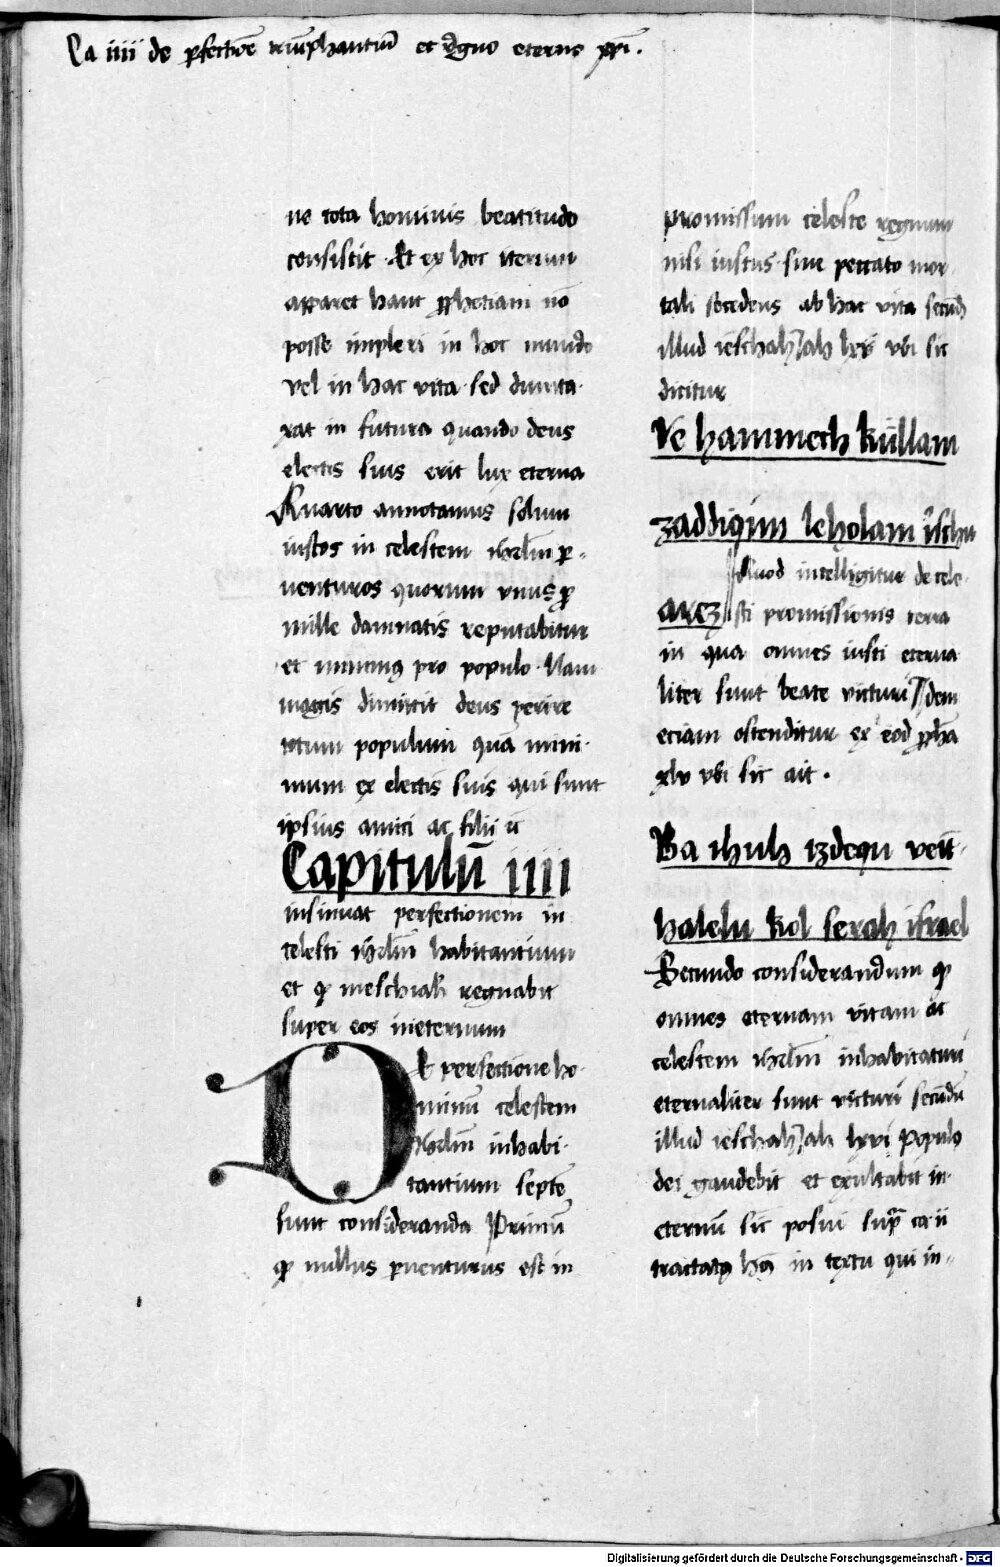 Ca iiii de pfectione triūphantiū et regno eterno xpi.
ne tota hominis beatitudo
consistit Et ex hoc iterum
apparet hanc prophetiam nō
posse impleri in hoc mundo
vel in hac vita sed dumta-
xat in futura quando deus
electis suis erit lux eterna
Quarto annotamus solum
iustos in celestem ihrlm̄ p-
uenturos quorum vnus p
mille damnatis reputabitur
et minimus pro populo Nam
magis dimittit deus perire
totum populum quā mini-
mum ex electis suis qui sunt
ipsius amici ac filii
Capitulū iiii
insinuat perfectionem in
celesti ihrlm̄ habitantium
et qp meschiah regnabit
super eos ineternum
De perfectione ho-
minū celestem
ihrlm̄ inhabi-
tantium septē
sunt consideranda Primū
qp nullus puenturus est in
promissum celeste regnum
nisi iustus sine peccato mor-
tali secedens ab hac vita secūdū
illud ieschahiah lx vbi sic
dicitur
Ve hammech kullam
zaddiqim leholam irschu
Quod intelligitur de cele-
arez sti promissionis terra
in qua omnes iusti eterna
liter sunt beate victuri Idem
eciam ostenditur ex eod ppha
xlv vbi sic ait.
Ba ihuh izdequ veit-
halelu kol serah israel
Secundo considerandum qp
omnes eternam vitam ac
celestem ihrlm̄ inhabitaturi
eternaliter sunt victuri secūdū
illud ieschahiah lxvi Populo
dei gaudebit et exultabit in
eternū sic posui supra ca ii
tractatus huius in textu qui in-